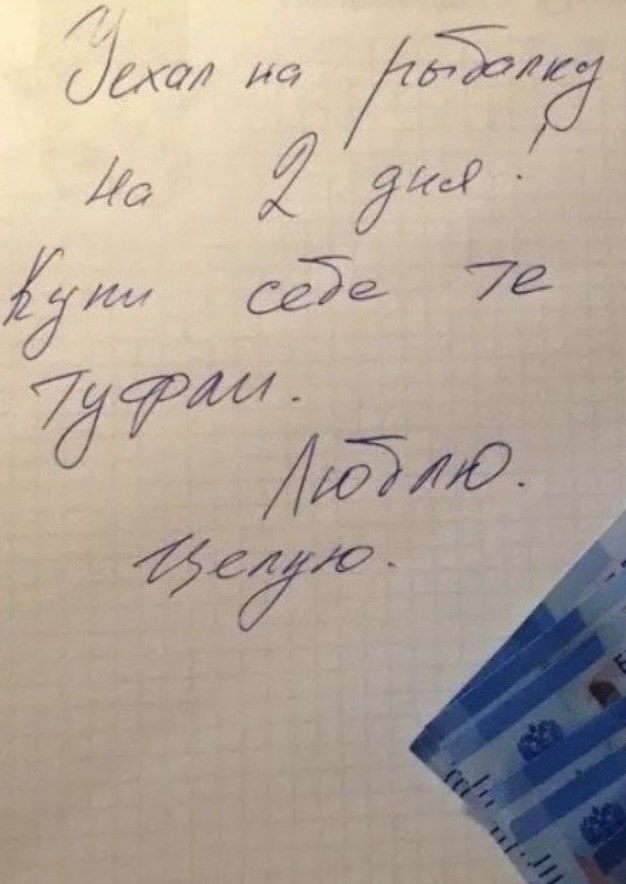 Уехал на рыбалку
на 2 дня!
Купи себе те
туфли.
Люблю.
Целую.